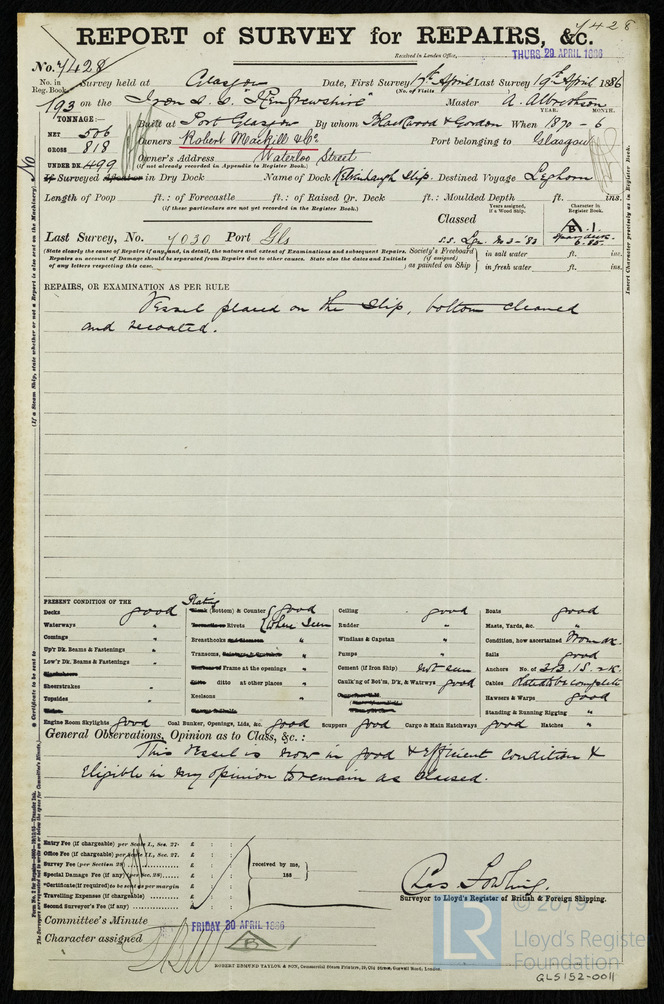 7428
REPORT of SURVEY for REPAIRS, &c.
Received in London Office, THURS 29 APRIL 1886
No. 7428
No. in Reg. Book. Survey held at Glasgow Date, First Survey 17th April Last Survey 19th April 1886
(No. of Visits)
193 on the Iron S.S. "Renfrewshire" Master A. Albrechson
TONNAGE:—
NET 506
GROSS 818
UNDER DK. 499
Built at Port Glasgow By whom Blackwood & Gordon When 1870 - 6
YEAR. MONTH.
Owners Robert Mackill & Co. Port belonging to Glasgow
Owner's Address Waterloo Street
(if not already recorded in Appendix to Register Book.)
If Surveyed Afloat or in Dry Dock Name of Dock Kelvinhaugh Slip. Destined Voyage Leghorn
Length of Poop ft.: of Forecastle ft.: of Raised Qr. Deck ft.: Moulded Depth ft. ins.
(if these particulars are not yet recorded in the Register Book.)
Years assigned, if a Wood Ship. Character in Register Book.
Classed
A 1.
B
Spar deck
6.85
Last Survey, No. 7030 Port Gls S.S. No 3 - '83
(State clearly the cause of Repairs if any, and, in detail, the nature and extent of Examinations and subsequent Repairs.
Repairs on account of Damage should be separated from Repairs due to other causes. State also the dates and Initials
of any letters respecting this case.
Society's Freeboard (if assigned) as painted on Ship
in salt water ft. ins.
in fresh water ft. ins.
REPAIRS, OR EXAMINATION AS PER RULE
Vessel placed on the slip, bottom cleaned
and recoated.
PRESENT CONDITION OF THE
Decks good
Waterways "
Comings "
Up'r Dk. Beams & Fastenings "
Low'r Dk. Beams & Fastenings "
Sheerstrakes "
Topsides "
Engine Room Skylights good
Plating (Bottom) & Counter good
Rivets (Where seen
Breasthooks "
Transoms, "
Frame at the openings "
ditto at other places "
Keelsons "
Coal Bunker, Openings, Lids, &c. good
Ceiling good
Rudder "
Windlass & Capstan "
Pumps "
Cement (if Iron Ship) not seen
Caulking of Bot'm, D'k, & Watrwys good
Scuppers good Cargo & Main Hatchways good
Boats good
Masts, Yards, &c. "
Condition, how ascertained From dk.
Sails good
Anchors No. of 3 B. 1 S. 2 K.
Cables Stated to be complete
Hawsers & Warps good
Standing & Running Rigging "
Hatches "
General Observations, Opinion as to Class, &c.:
This Vessel is now in good & efficient condition &
Eligible in my opinion to remain as classed.
Entry Fee (if chargeable) per Scale I., Sec. 27. £ : :
Office Fee (if chargeable) per Scale II., Sec. 27. £ : :
Survey Fee (per Section 28) £ : :
Special Damage Fee (if any) (per Sec. 28) £ : :
*Certificate (if required) to be sent as per margin £ : :
Travelling Expenses (if chargeable) £ : :
Second Surveyor's Fee (if any) £ : :
received by me,
188
Chas Fowling.
Surveyor to Lloyd's Register of British & Foreign Shipping.
Committee's Minute FRIDAY 30 APRIL 1886
Character assigned
A
B 1
ROBERT EDMUND TAYLOR & SON, Commercial Steam Printers, 19, Old Street, Goswell Road, London.
LR
© 2019
Lloyd's Register
Foundation
GLS152-0011
Insert Character precisely as in Register Book.
(If a Steam Ship, state whether or not a Report is also sent on the Machinery). No
* Certificate to be sent to